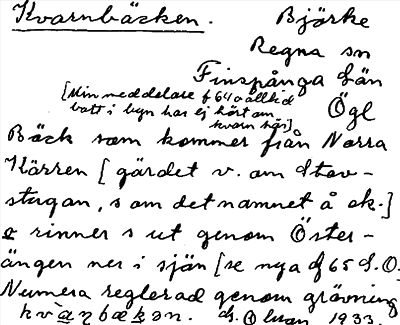 Kvarnbäcken. Björke
Regna sn
Finspånga län
[Min meddelare f 64 o alltid
bott i byn har ej hört om
kvarn här] Ögl
Bäck som kommer från Norra
Kärren [gärdet v. om Stav-
stugan, som det namnet å ek.]
o rinner s ut genom Öster-
ängen ner i sjön [se nya 65 S.O.
Numera reglerad genom grävning
1933.